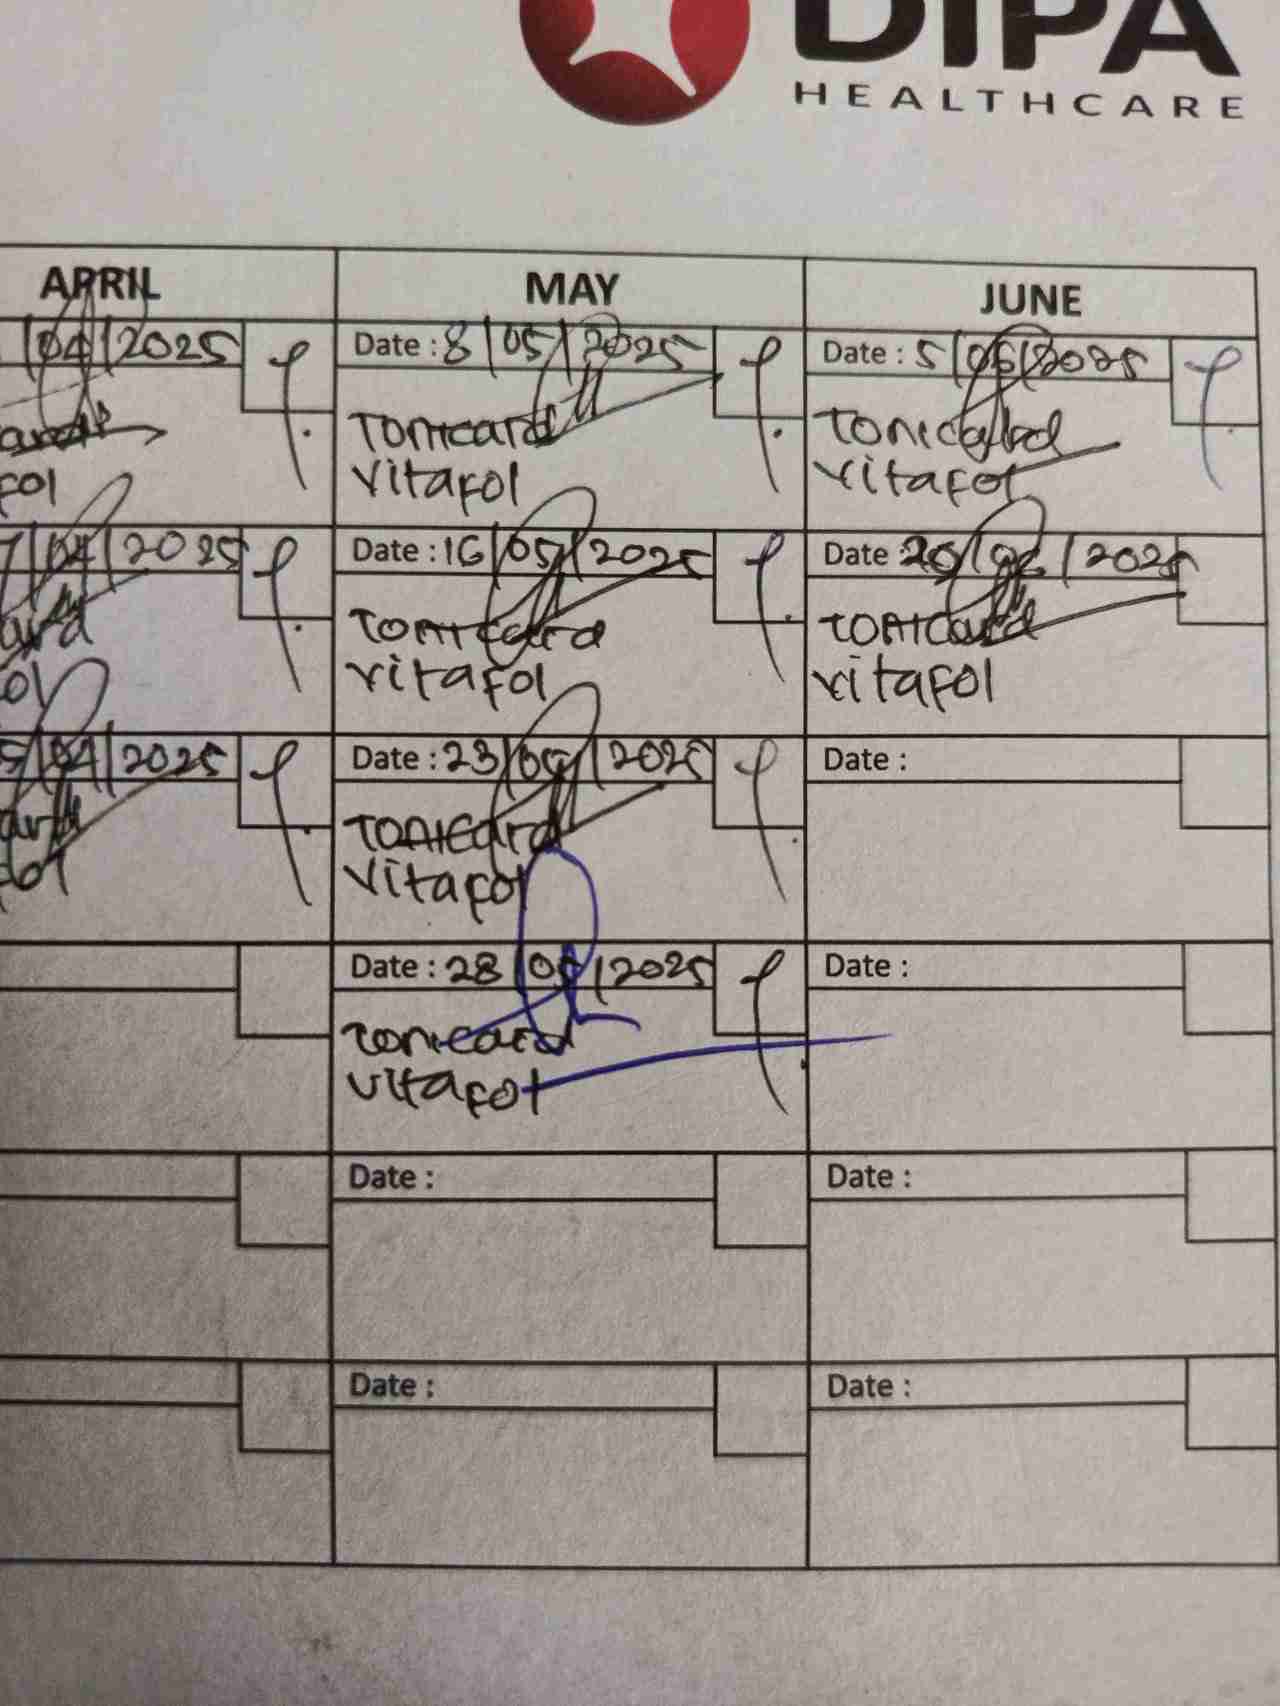 DIPA
HEALTHCARE
APRIL MAY JUNE
/04/2025 Date : 8/05/2025 Date : 5/06/2025
Tonicard Tonicard
fol Vitafol Vitafol
7/04/2025 Date : 16/05/2025 Date : 20/06/2025
ard Tonicard Tonicard
ol Vitafol Vitafol
5/04/2025 Date : 23/05/2025 Date :
ard Tonicard
fol Vitafol
Date : 28/05/2025 Date :
Tonicard
Vitafol
Date : Date :
Date : Date :